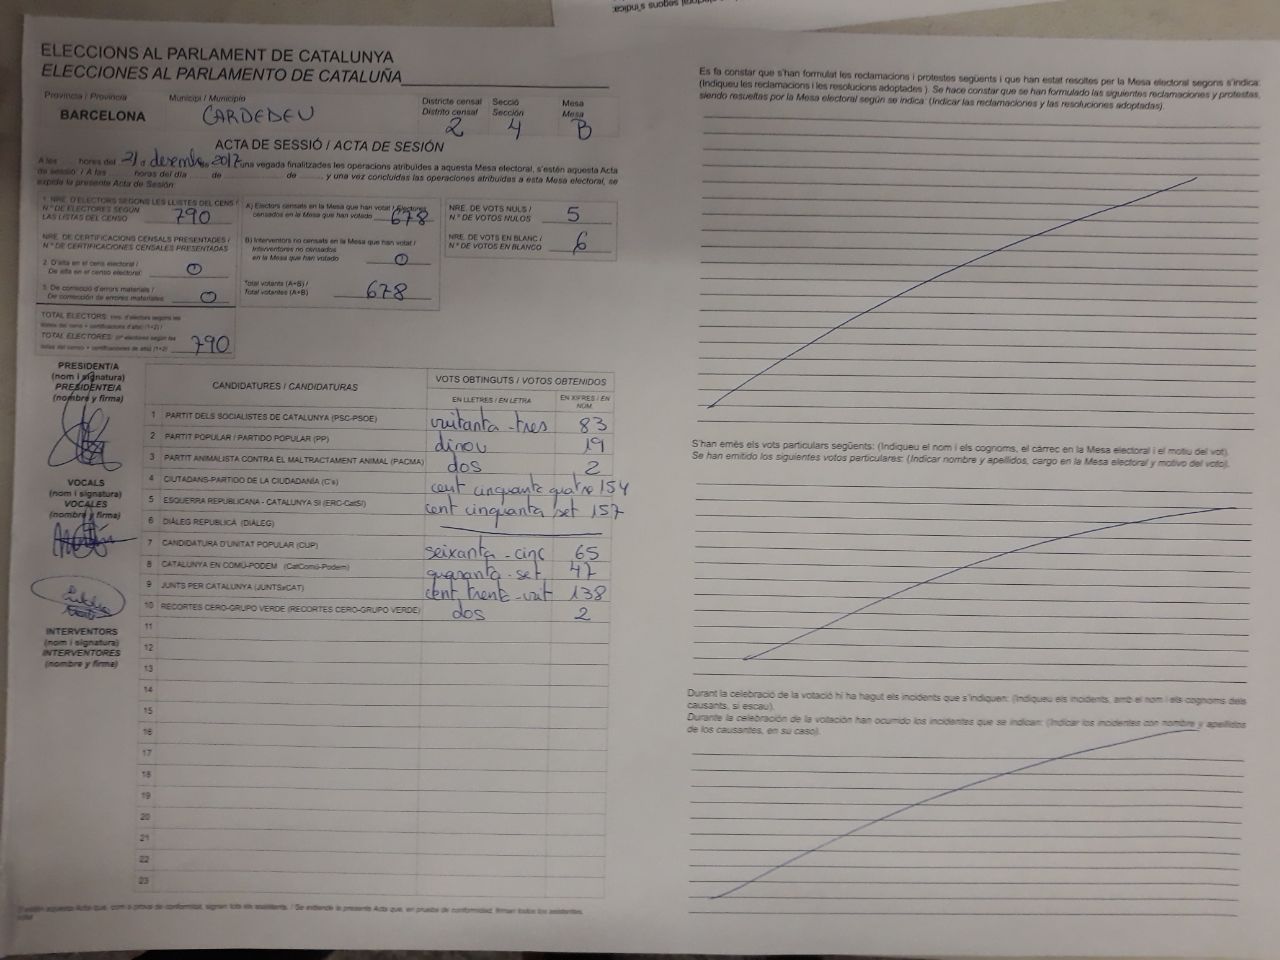 ELECCIONS AL PARLAMENT DE CATALUNYA
ELECCIONES AL PARLAMENTO DE CATALUÑA
Provincia / Província
BARCELONA
Municipi / Municipio
CARDEDEU
Districte censal
Distrito censal
2
Secció
Sección
4
Mesa
Mesa
B
ACTA DE SESSIÓ / ACTA DE SESIÓN
A les hores del 21 d desembre 2017 una vegada finalitzades les operacions atribuïdes a aquesta Mesa electoral, s'estén aquesta Acta
de sessió: / A las horas del día de de y una vez concluidas las operaciones atribuidas a esta Mesa electoral, se
expide la presente Acta de Sesión:
1. NRE. D'ELECTORS SEGONS LES LLISTES DEL CENS /
N.º DE ELECTORES SEGÚN
LAS LISTAS DEL CENSO
790
NRE. DE CERTIFICACIONS CENSALS PRESENTADES /
N.º DE CERTIFICACIONES CENSALES PRESENTADAS
2. D'alta en el cens electoral /
De alta en el censo electoral:
0
3. De correcció d'errors materials /
De corrección de errores materiales
0
TOTAL ELECTORS:
TOTAL ELECTORES:
790
A) Electors censats en la Mesa que han votat / Electores
censados en la Mesa que han votado
678
B) Interventors no censats en la Mesa que han votat /
Interventores no censados
en la Mesa que han votado
0
Total votants (A+B) /
Total votantes (A+B)
678
NRE. DE VOTS NULS /
N.º DE VOTOS NULOS
5
NRE. DE VOTS EN BLANC /
N.º DE VOTOS EN BLANCO
6
PRESIDENT/A
(nom i signatura)
PRESIDENTE/A
(nombre y firma)
VOCALS
(nom i signatura)
VOCALES
(nombre y firma)
INTERVENTORS
(nom i signatura)
INTERVENTORES
(nombre y firma)
CANDIDATURES / CANDIDATURAS
VOTS OBTINGUTS / VOTOS OBTENIDOS
EN LLETRES / EN LETRA
EN XIFRES / EN
NÚM.
1 PARTIT DELS SOCIALISTES DE CATALUNYA (PSC-PSOE) vuitanta-tres 83
2 PARTIT POPULAR / PARTIDO POPULAR (PP) dinou 19
3 PARTIT ANIMALISTA CONTRA EL MALTRACTAMENT ANIMAL (PACMA) dos 2
4 CIUTADANS-PARTIDO DE LA CIUDADANÍA (C's) cent cinquanta quatre 154
5 ESQUERRA REPUBLICANA - CATALUNYA SÍ (ERC-CatSÍ) cent cinquanta set 157
6 DIÀLEG REPUBLICÀ (DIÀLEG)
7 CANDIDATURA D'UNITAT POPULAR (CUP) seixanta-cinc 65
8 CATALUNYA EN COMÚ-PODEM (CatComú-Podem) quaranta-set 47
9 JUNTS PER CATALUNYA (JUNTSxCAT) cent trenta-vuit 138
10 RECORTES CERO-GRUPO VERDE (RECORTES CERO-GRUPO VERDE) dos 2
11
12
13
14
15
16
17
18
19
20
21
22
23
S'estén aquesta Acta que, com a prova de conformitat, signen tots els assistents. / Se extiende la presente Acta que, en prueba de conformidad, firman todos los asistentes.
Es fa constar que s'han formulat les reclamacions i protestes següents i que han estat resoltes per la Mesa electoral segons s'indica:
(Indiqueu les reclamacions i les resolucions adoptades ). Se hace constar que se han formulado las siguientes reclamaciones y protestas,
siendo resueltas por la Mesa electoral según se indica: (Indicar las reclamaciones y las resoluciones adoptadas).
S'han emès els vots particulars següents: (Indiqueu el nom i els cognoms, el càrrec en la Mesa electoral i el motiu del vot).
Se han emitido los siguientes votos particulares: (Indicar nombre y apellidos, cargo en la Mesa electoral y motivo del voto).
Durant la celebració de la votació hi ha hagut els incidents que s'indiquen: (Indiqueu els incidents, amb el nom i els cognoms dels
causants, si escau).
Durante la celebración de la votación han ocurrido los incidentes que se indican: (Indicar los incidentes con nombre y apellidos
de los causantes, en su caso).